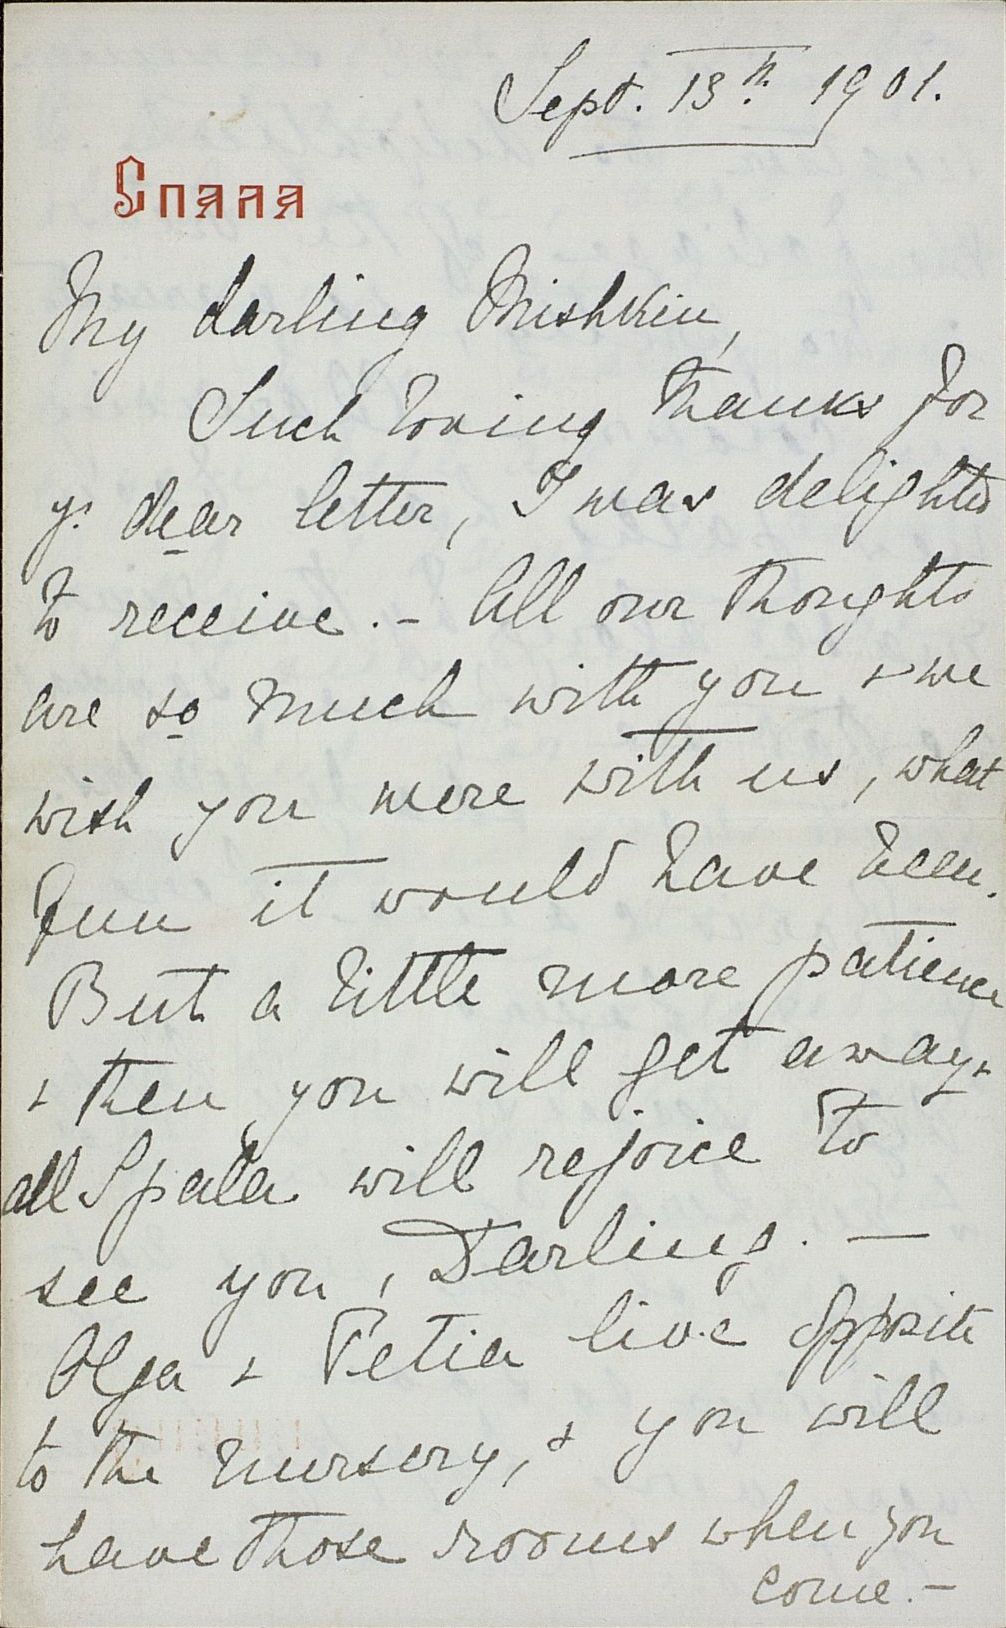 Sept. 13th 1901.
Спала
My darling Mishkin,
Such loving thanks for
yr dear letter, I was delighted
to receive. - All our thoughts
are so much with you + we
wish you were with us, what
fun it would have been.
But a little more patience
+ then you will get away +
all Spala will rejoice to
see you, Darling. —
Olga + Petia live opposite
to the nursery, + you will
have those rooms when you
come. -